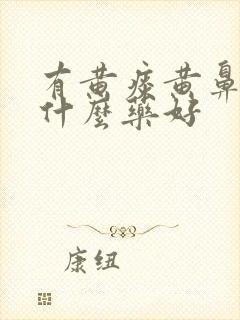 有黄痰黄鼻
什麼藥好
康纽